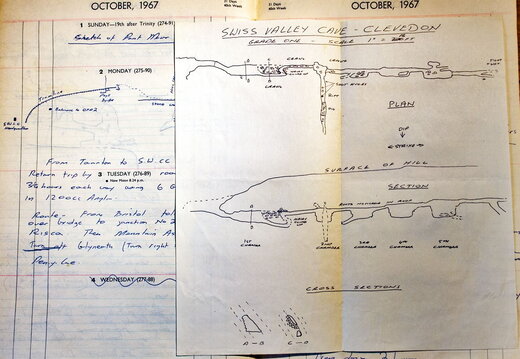 OCTOBER, 1967
31 Days
40th Week
31 Days
40th Week
OCTOBER, 1967
1 SUNDAY—19th after Trinity (274-91)
Sketch of
2 MONDAY (275-90)
From Taunton to S.W.CC
Return trip by
3 TUESDAY (276-89)
New Moon 8.24 p.m.
hours each way using 6 G
in 1200cc Anglia.
Route:- From Bristol
over bridge to junction No 2
Risca. Then Mountain As
Turn off Glyneath (Turn right
Penycae
4 WEDNESDAY (277-88)
SWISS VALLEY CAVE - CLEVEDON
GRADE ONE - SCALE 1" =
CRAWL
CRAWL
PLAN
DIP
STRIKE
SURFACE OF HILL
SECTION
ROOTS
IN ROOF
1ST
CHAMBER
2ND
CHAMBER
3RD
CHAMBER
4TH
CHAMBER
5TH
CHAMBER
CROSS SECTIONS
A - B
C - D